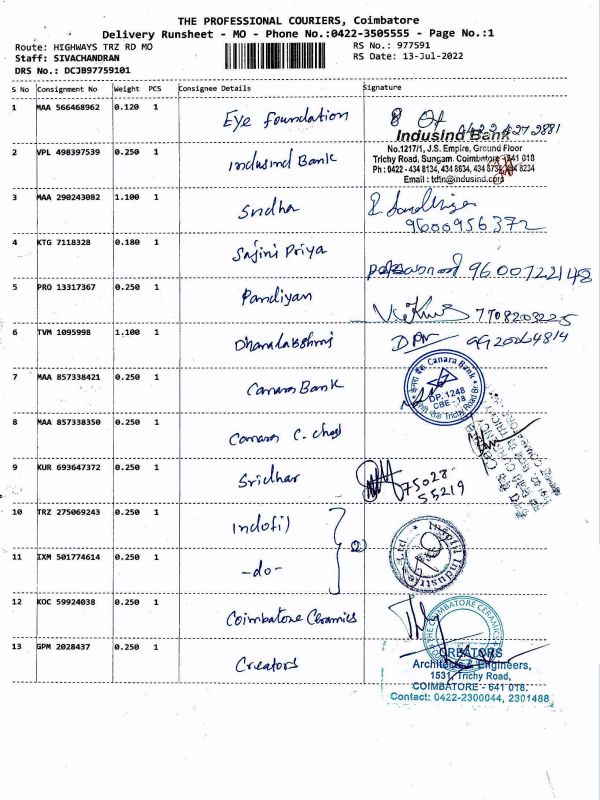 THE PROFESSIONAL COURIERS, Coimbatore
Delivery Runsheet - MO - Phone No.:0422-3505555 - Page No.:1
Route: HIGHWAYS TRZ RD MO RS No.: 977591
Staff: SIVACHANDRAN RS Date: 13-Jul-2022
DRS No.: DCJB97759101
S No Consignment No Weight PCS Consignee Details Signature
1 MAA 566468962 0.120 1 Eye foundation
IndusInd Bank
No.1217/1, J.S. Empire, Ground Floor
2 VPL 498397539 0.250 1 indusind Bank Trichy Road, Sungam. Coimbatore - 641 018
Ph : 0422 - 434 8134, 434 8634, 434 8234
Email : tdfin@indusind.com
3 MAA 290243082 1.100 1 Sridhar
9600956372
4 KTG 7118328 0.180 1 Sajini Priya 9600722148
5 PRO 13317367 0.250 1 Pandiyan 7708203225
6 TVM 1095998 1.100 1 Dhanalakshmi
7 MAA 857338421 0.250 1 Canara Bank Canara Bank
DP. 1248
CBE - 18
Trichy Road Br.
8 MAA 857338350 0.250 1 Canara
9 KUR 693647372 0.250 1 Sridhar 75028-
55219
10 TRZ 275069243 0.250 1 Indofil
11 IXM 501774614 0.250 1 -do-
12 KOC 59924038 0.250 1 Coimbatore Ceramics THE COIMBATORE CERAMICS
13 GPM 2028437 0.250 1 Creators CREATORS
Architects & Engineers,
1531, Trichy Road,
COIMBATORE - 641 018.
Contact: 0422-2300044, 2301488